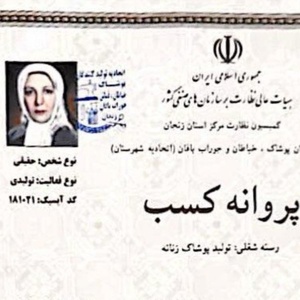 جمهوری اسلامی ایران
هیات عالی نظارت بر سازمان های صنفی کشور
کمیسیون نظارت مرکز استان زنجان
ان پوشاک ، خیاطان و جوراب بافان (اتحادیه شهرستان)
پروانه کسب
رسته شغلی: تولید پوشاک زنانه
اتحادیه تولید کنندگان
پوشاک
نوع شخص: حقیقی
نوع فعالیت: تولیدی
کد آیسیک: ۱۸۱۰۲۱